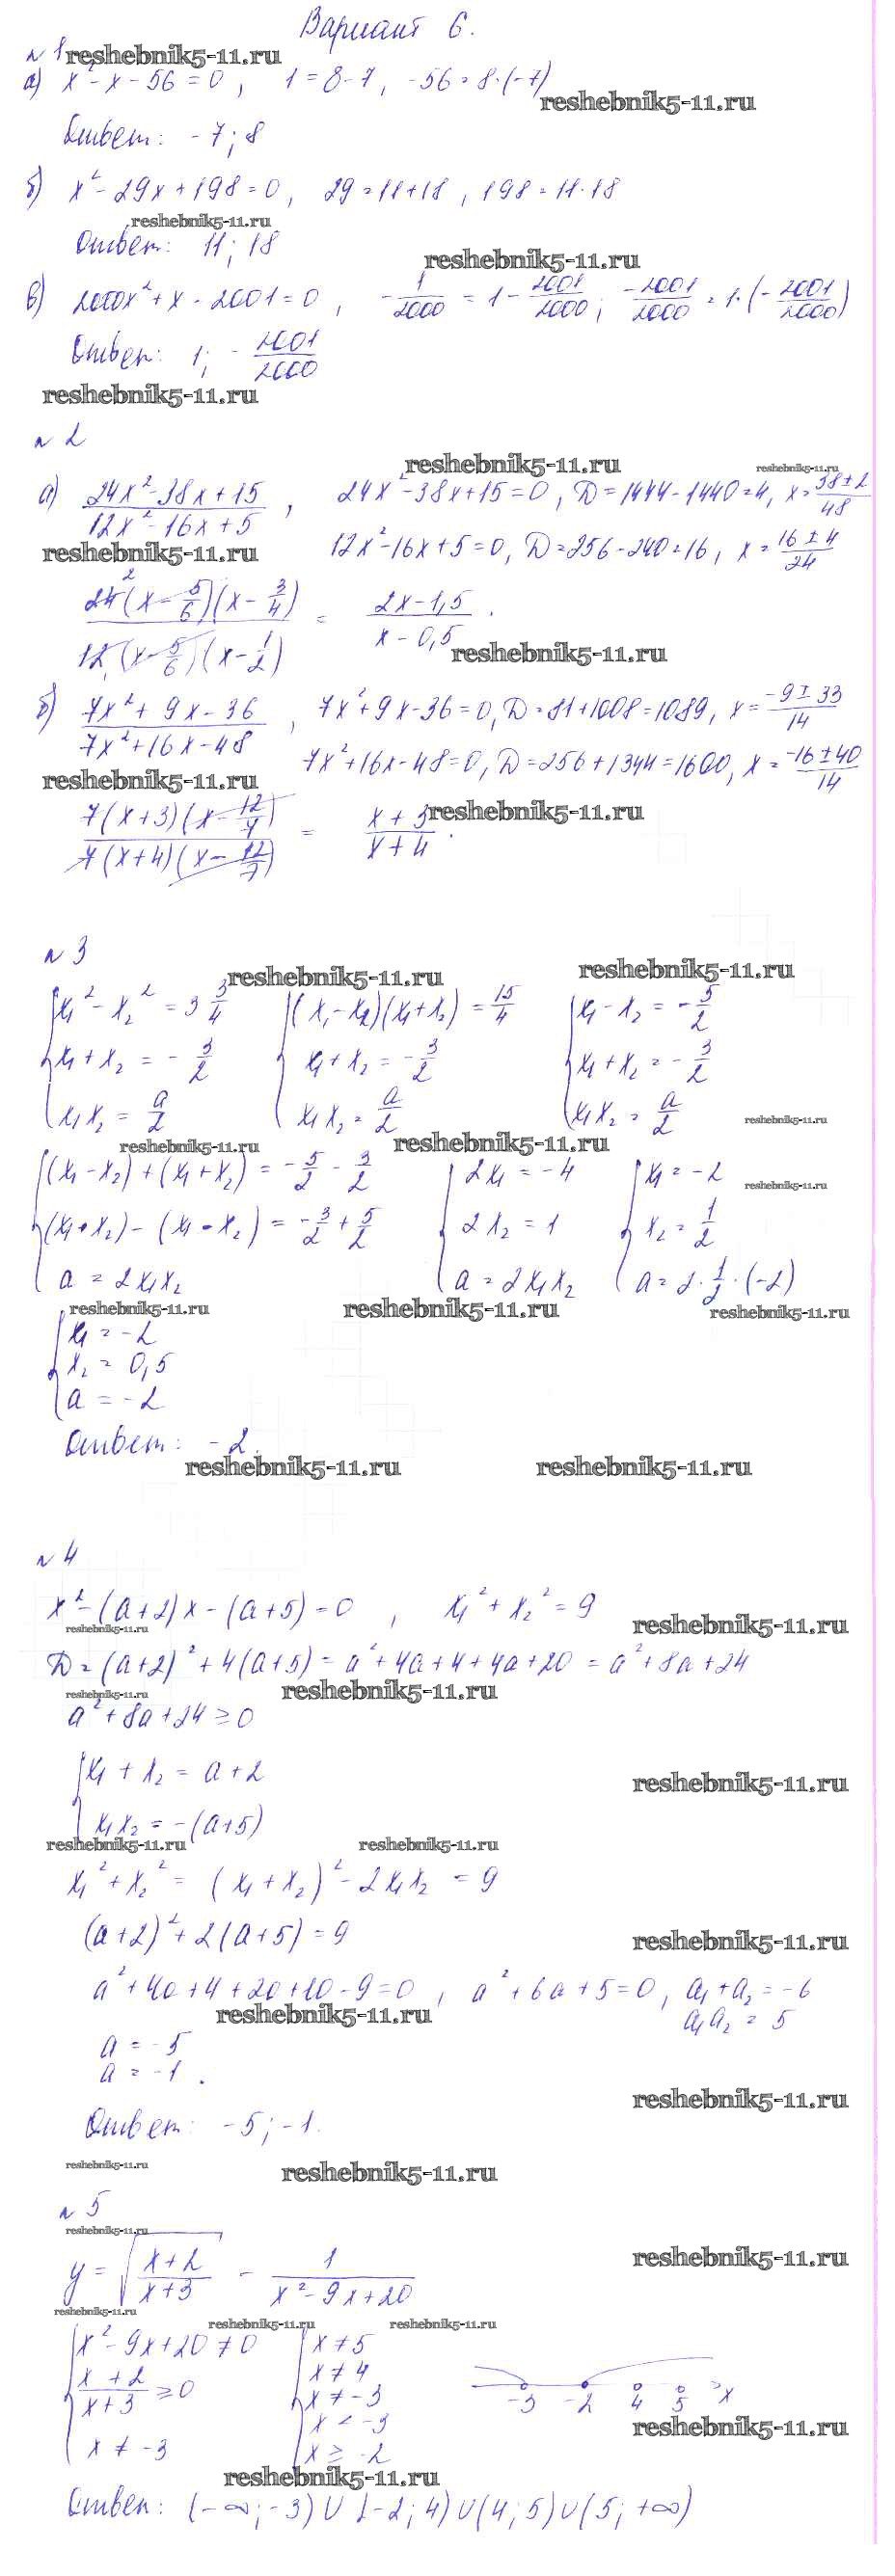 Вариант 6.
№ 1 reshebnik5-11.ru
а) x² - x - 56 = 0, 1 = 8 - 7, -56 = 8·(-7)
reshebnik5-11.ru
Ответ: -7; 8
б) x² - 29x + 198 = 0, 29 = 11 + 18, 198 = 11·18
reshebnik5-11.ru
Ответ: 11; 18
reshebnik5-11.ru
в) 2000x² + x - 2001 = 0, -1/2000 = 1 - 2001/2000; -2001/2000 = 1·(-2001/2000)
Ответ: 1; -2001/2000
reshebnik5-11.ru
№ 2
reshebnik5-11.ru reshebnik5-11.ru
а) (24x² - 38x + 15)/(12x² - 16x + 5), 24x² - 38x + 15 = 0, D = 1444 - 1440 = 4, x = (38 ± 2)/48
reshebnik5-11.ru 12x² - 16x + 5 = 0, D = 256 - 240 = 16, x = (16 ± 4)/24
2
24(x - 5/6)(x - 3/4) / 12(x - 5/6)(x - 1/2) = (2x - 1,5)/(x - 0,5).
reshebnik5-11.ru
б) (7x² + 9x - 36)/(7x² + 16x - 48), 7x² + 9x - 36 = 0, D = 81 + 1008 = 1089, x = (-9 ± 33)/14
7x² + 16x - 48 = 0, D = 256 + 1344 = 1600, x = (-16 ± 40)/14
reshebnik5-11.ru
7(x + 3)(x - 12/7) / 7(x + 4)(x - 12/7) = (x + 3)/(x + 4).
reshebnik5-11.ru
№ 3
reshebnik5-11.ru reshebnik5-11.ru
{x₁² - x₂² = 3 3/4 {(x₁ - x₂)(x₁ + x₂) = 15/4 {x₁ - x₂ = -5/2
x₁ + x₂ = -3/2 x₁ + x₂ = -3/2 x₁ + x₂ = -3/2
x₁x₂ = a/2 x₁x₂ = a/2 x₁x₂ = a/2
reshebnik5-11.ru
reshebnik5-11.ru reshebnik5-11.ru
{(x₁ - x₂) + (x₁ + x₂) = -5/2 - 3/2 {2x₁ = -4 {x₁ = -2
reshebnik5-11.ru
(x₁ + x₂) - (x₁ - x₂) = -3/2 + 5/2 2x₂ = 1 x₂ = 1/2
a = 2x₁x₂ a = 2x₁x₂ a = 2·1/2·(-2)
reshebnik5-11.ru reshebnik5-11.ru reshebnik5-11.ru
{x₁ = -2
x₂ = 0,5
a = -2
Ответ: -2.
reshebnik5-11.ru reshebnik5-11.ru
№ 4
x² - (a + 2)x - (a + 5) = 0, x₁² + x₂² = 9
reshebnik5-11.ru reshebnik5-11.ru
D = (a + 2)² + 4(a + 5) = a² + 4a + 4 + 4a + 20 = a² + 8a + 24
reshebnik5-11.ru reshebnik5-11.ru
a² + 8a + 24 ≥ 0
{x₁ + x₂ = a + 2
reshebnik5-11.ru
x₁x₂ = -(a + 5)
reshebnik5-11.ru reshebnik5-11.ru
x₁² + x₂² = (x₁ + x₂)² - 2x₁x₂ = 9
(a + 2)² + 2(a + 5) = 9
reshebnik5-11.ru
a² + 4a + 4 + 2a + 10 - 9 = 0, a² + 6a + 5 = 0, a₁ + a₂ = -6
reshebnik5-11.ru a₁a₂ = 5
a = -5
a = -1.
reshebnik5-11.ru
Ответ: -5; -1.
reshebnik5-11.ru reshebnik5-11.ru
№ 5
reshebnik5-11.ru
y = √((x + 2)/(x + 3)) - 1/(x² - 9x + 20)
reshebnik5-11.ru
reshebnik5-11.ru reshebnik5-11.ru reshebnik5-11.ru
{x² - 9x + 20 ≠ 0 {x ≠ 5
(x + 2)/(x + 3) ≥ 0 x ≠ 4
x ≠ -3 x ≠ -3
x < -3
x ≥ -2
-3 -2 4 5 x
reshebnik5-11.ru
reshebnik5-11.ru
Ответ: (-∞; -3) ∪ [-2; 4) ∪ (4; 5) ∪ (5; +∞)